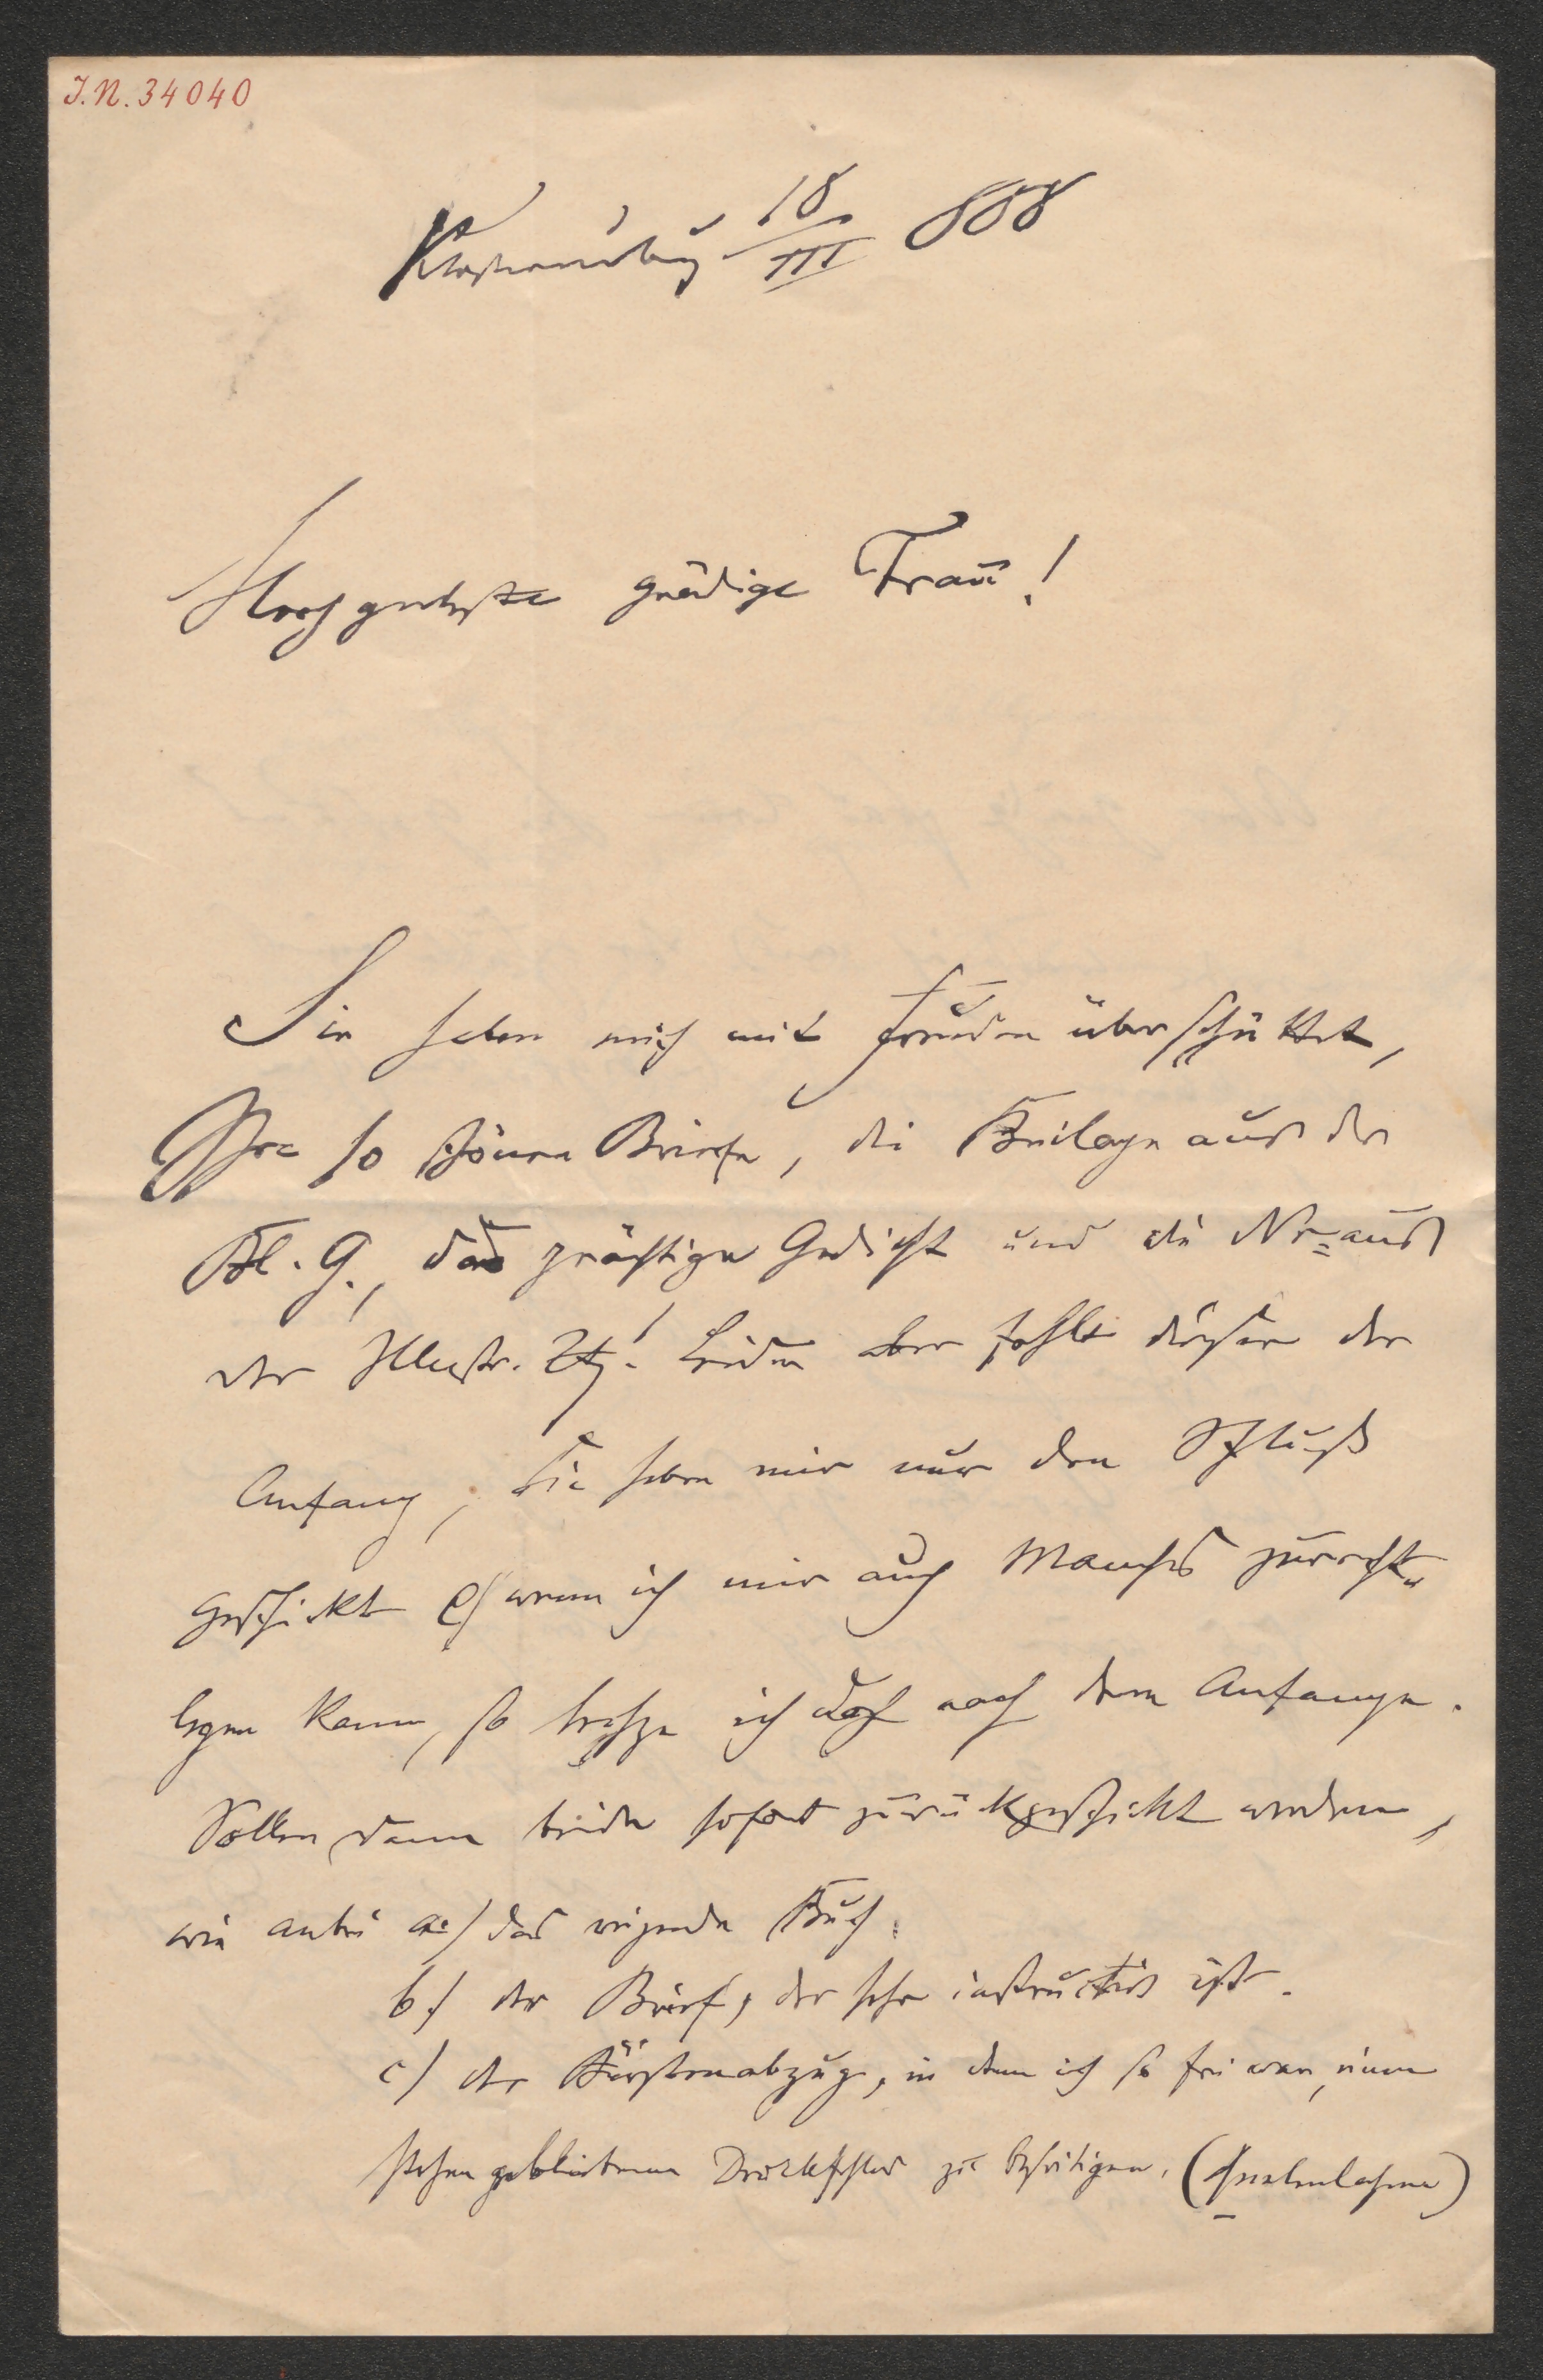 J.N. 34040
Klosterneubg 18/III 888
Hochgeehrte gnädige Frau!
Sie haben mich mit Freuden überschüttet,
Ihre so schönen Briefe, die Beilage aus der
Bl. G., das prächtige Gedicht und die Nr= aus
der Illustr. Ztg.! Leider aber fehlt dieser der
Anfang, Sie haben mir nur den Schluß
geschickt wenn ich mir auch Manches zurecht„
legen kann, so ich doch nach dem Anfange.
Sollen dann beide sofort zurückgeschickt werden,
wie anbei a.) das reizende Buch.
b.) der Brief, der sehr instructiv ist.
c) der Bürstenabzug, in dem ich so frei war, einen
stehen gebliebenen Druckfehler zu beseitigen.